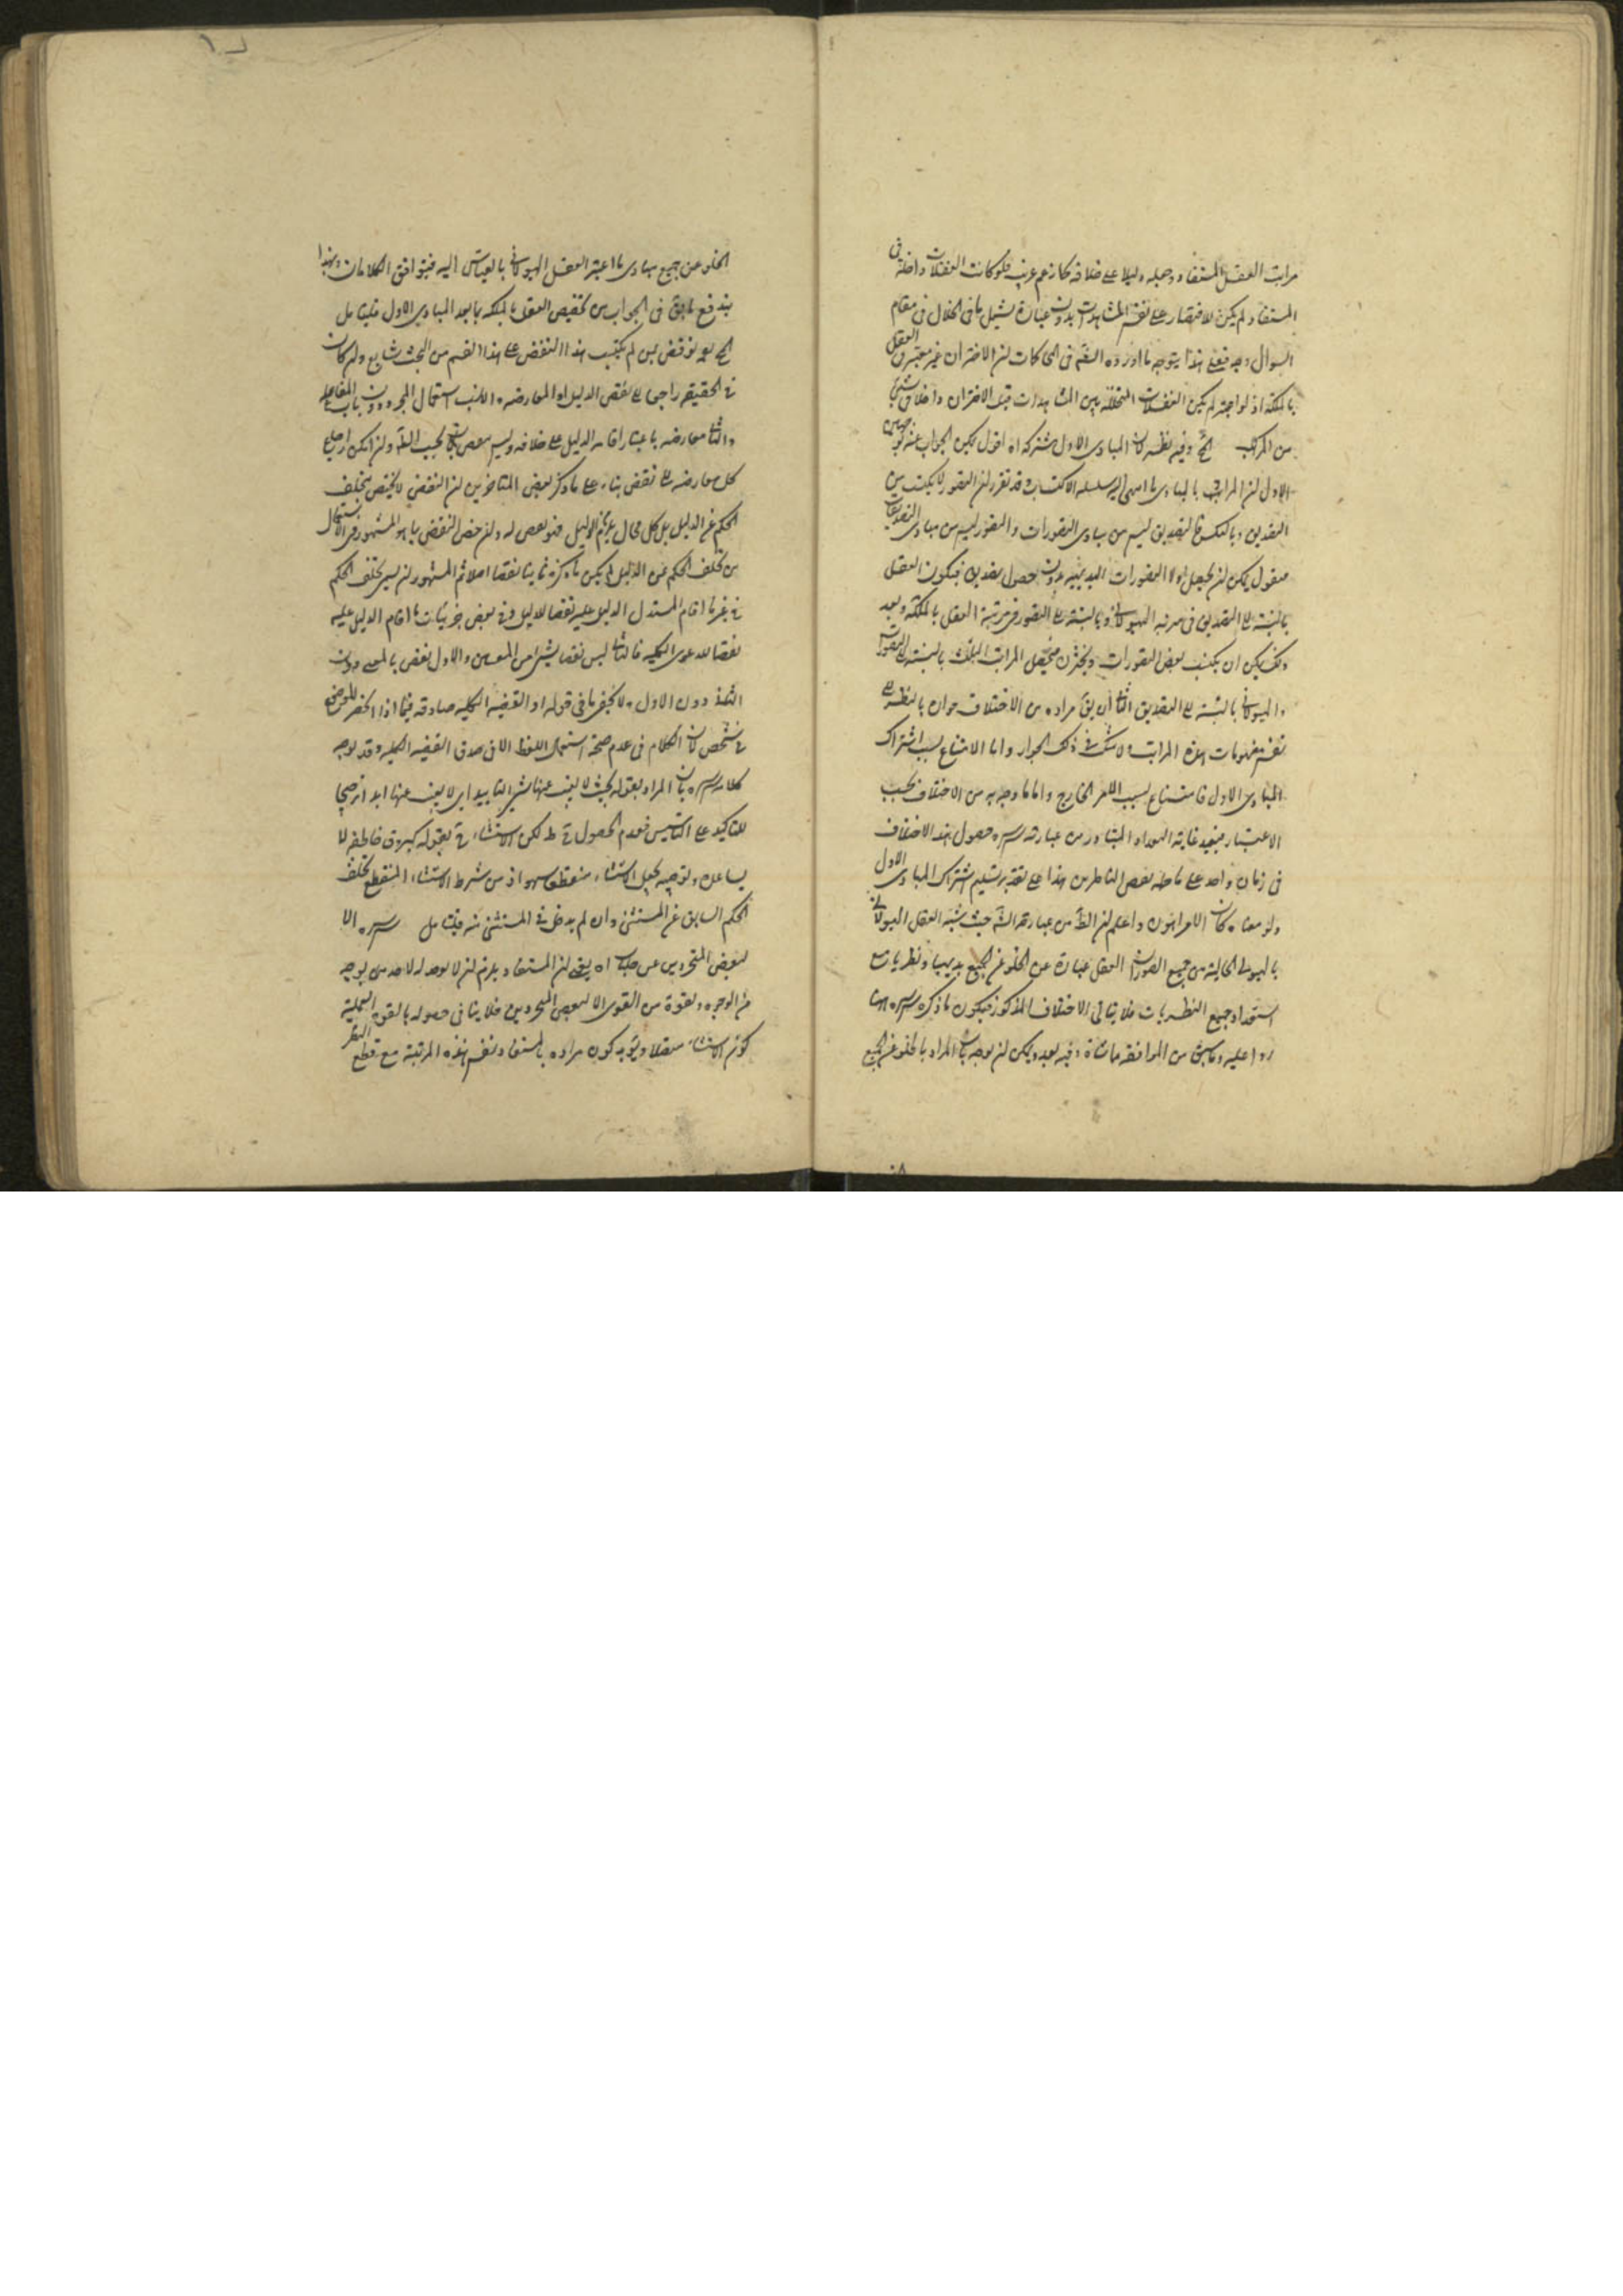 مراتب العقل المستفاد وجعله دليلا على خلافه كما زعم غريب فلو كانت الغفلات داخلة فى
المستفاد لم يكن للاقتصار على نفس المشاهدات بدون عبارة يشمل ما فى الخلال فى مقام
السوال وجه فعلى هذا يتوجه ما اورده الش فى المحاكات لان الاختران غير معتبر فى العقل
بالملكة اذ لو اعتبر لم يكن الغفلات المتخللة بين المشاهدات قبل الاختران داخلا فى شئ
من المراتب الخ وفيه نظر لان المبادى الاول مشتركة اه اقول يمكن الجواب عنه بوجهين
الاول ان المراد بالمبادى ما انتهى اليه سلسلة الاكتساب وقد تقرر ان التصور لا يكتسب من
التصديق وبالعكس فالتصديق ليس من مبادى التصورات والتصور ليس من مبادى التصديقات
فنقول يمكن ان يحصل اولا التصورات البديهية بدون حصول تصديق فيكون العقل
بالنسبة الى التصديق فى مرتبة الهيولانى وبالنسبة الى التصور فى مرتبة العقل بالملكة وبعد
ذلك يمكن ان يكتسب بعض التصورات ويختزن فيحصل المراتب الثلث بالنسبة الى التصور
والهيولانى بالنسبة الى التصديق الثانى ان يق مراده من الاختلاف جوازه بالنظر الى
نفس مفهومات هذه المراتب ولا شك فى ذلك الجواز واما الامتناع بسبب اشتراك
المبادى الاول فامتناع بسبب الامر الخارج واما ما وجه به من الاختلاف بحسب
الاعتبار فبعيد غاية البعد اذ المتبادر من عبارته سره حصول هذا الاختلاف
فى زمان واحد على ما ظنه بعض الناظرين هذا على تقدير تسليم اشتراك المبادى الاول
ولو معناه كان الامر اهون واعلم ان الظ من عبارة الش حيث شبه العقل الهيولانى
بالهيولى الخالية من جميع الصور ان العقل عبارة عن الخلو عن الجميع بديهيا ونظريا مع
استعداد جميع النظريات فلا ينافى الاختلاف المذكور فيكون ما ذكره سره هنا
ردا عليه وما سبق من الموافقة مماشاة وفيه بعد ويمكن ان يوجه بان المراد بالخلو عن الجميع
الخلو عن جميع مبادى ما اعتبر العقل الهيولانى بالقياس اليه فيتوافق الكلامان وبهذا
يندفع ما يق فى الجواب من تخصيص العقل بالملكة بما بعد المبادى الاول فليتامل
الخ لو نوقض بمن لم يكتسب هذا النقض على هذا القسم من البحث شايع وان كان
فى الحقيقة راجعا الى نقض الدليل او المعارضة والانسب استعمال المجرد دون باب المفاعلة
والثانى معارضة باعتبار اقامة الدليل على خلافه وليس بنقض بحسب الظ وان امكن ارجاع
كل معارضة الى نقض بناء على ما ذكر بعض المتاخرين ان النقض لا يختص بتخلف
الحكم عن الدليل بل كل محال يلزم الدليل فهو نقض له وان خص النقض بما هو المشهور فى الاستعمال
من تخلف الحكم عن الدليل لم يكن ما ذكره ثانيا نقضا اصلا ثم المشهور ان يسمى تخلف الحكم
فى غير ما اقام المستدل الدليل عليه نقضا للدليل وفى بعض جزئيات ما اقام الدليل عليه
نقضا للدعوى الكلية فالثانى ليس نقضا بشئ من المعنيين والاول نقض بالمعنى دون
الثانى دون الاول ولا يخفى ما فى قوله اذ القضية الكلية صادقة فيما اذا انحصر الموضوع
فى شخص لان الكلام فى عدم صحة استعمال اللفظ لا فى صدق القضية الكلية وقد يوجه
كلامه سره بان المراد بقوله بحيث لا يغيب عنها شئ التابيد اى لا يغيب عنها ابدا ترجيحا
للتاكيد على التاسيس فعدم الحصول ح ظ لكن الاستثناء ح بقوله كبروق خاطفة لا
يساعده وتوجيه بجعل الاستثناء منقطعا سهو اذ من شرط الاستثناء المنقطع تخلف
الحكم السابق عن المستثنى وان لم يدخل فى المستثنى منه فليتامل سره الا
لبعض المتجردين عن جلباب اه يعنى ان المستفاد يلزم ان لا يوجد لاحد من يوجه
من الوجوه وبقوة من القوى الا لبعض المتجردين فلا ينافى حصوله بالقوة العملية
كون الاستثناء متصلا ويؤيد كون مراده بالمستفاد نفس هذه المرتبة مع قطع النظر